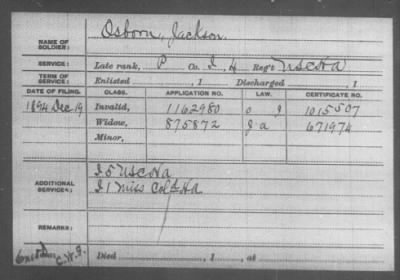 Osborn, Jackson.
NAME OF
SOLDIER:
SERVICE: Late rank, P Co. I, 4 Reg't USCHA
TERM OF
SERVICE: Enlisted , 1 Discharged , 1
DATE OF FILING. CLASS. APPLICATION NO. LAW. CERTIFICATE NO.
1894 Dec. 19 Invalid, 1162980 1015507
Widow, 875872 671974
Minor,
ADDITIONAL
SERVICES:
I 5 USCHA
I 1 Miss Col HA
REMARKS:
Died , 1 , at